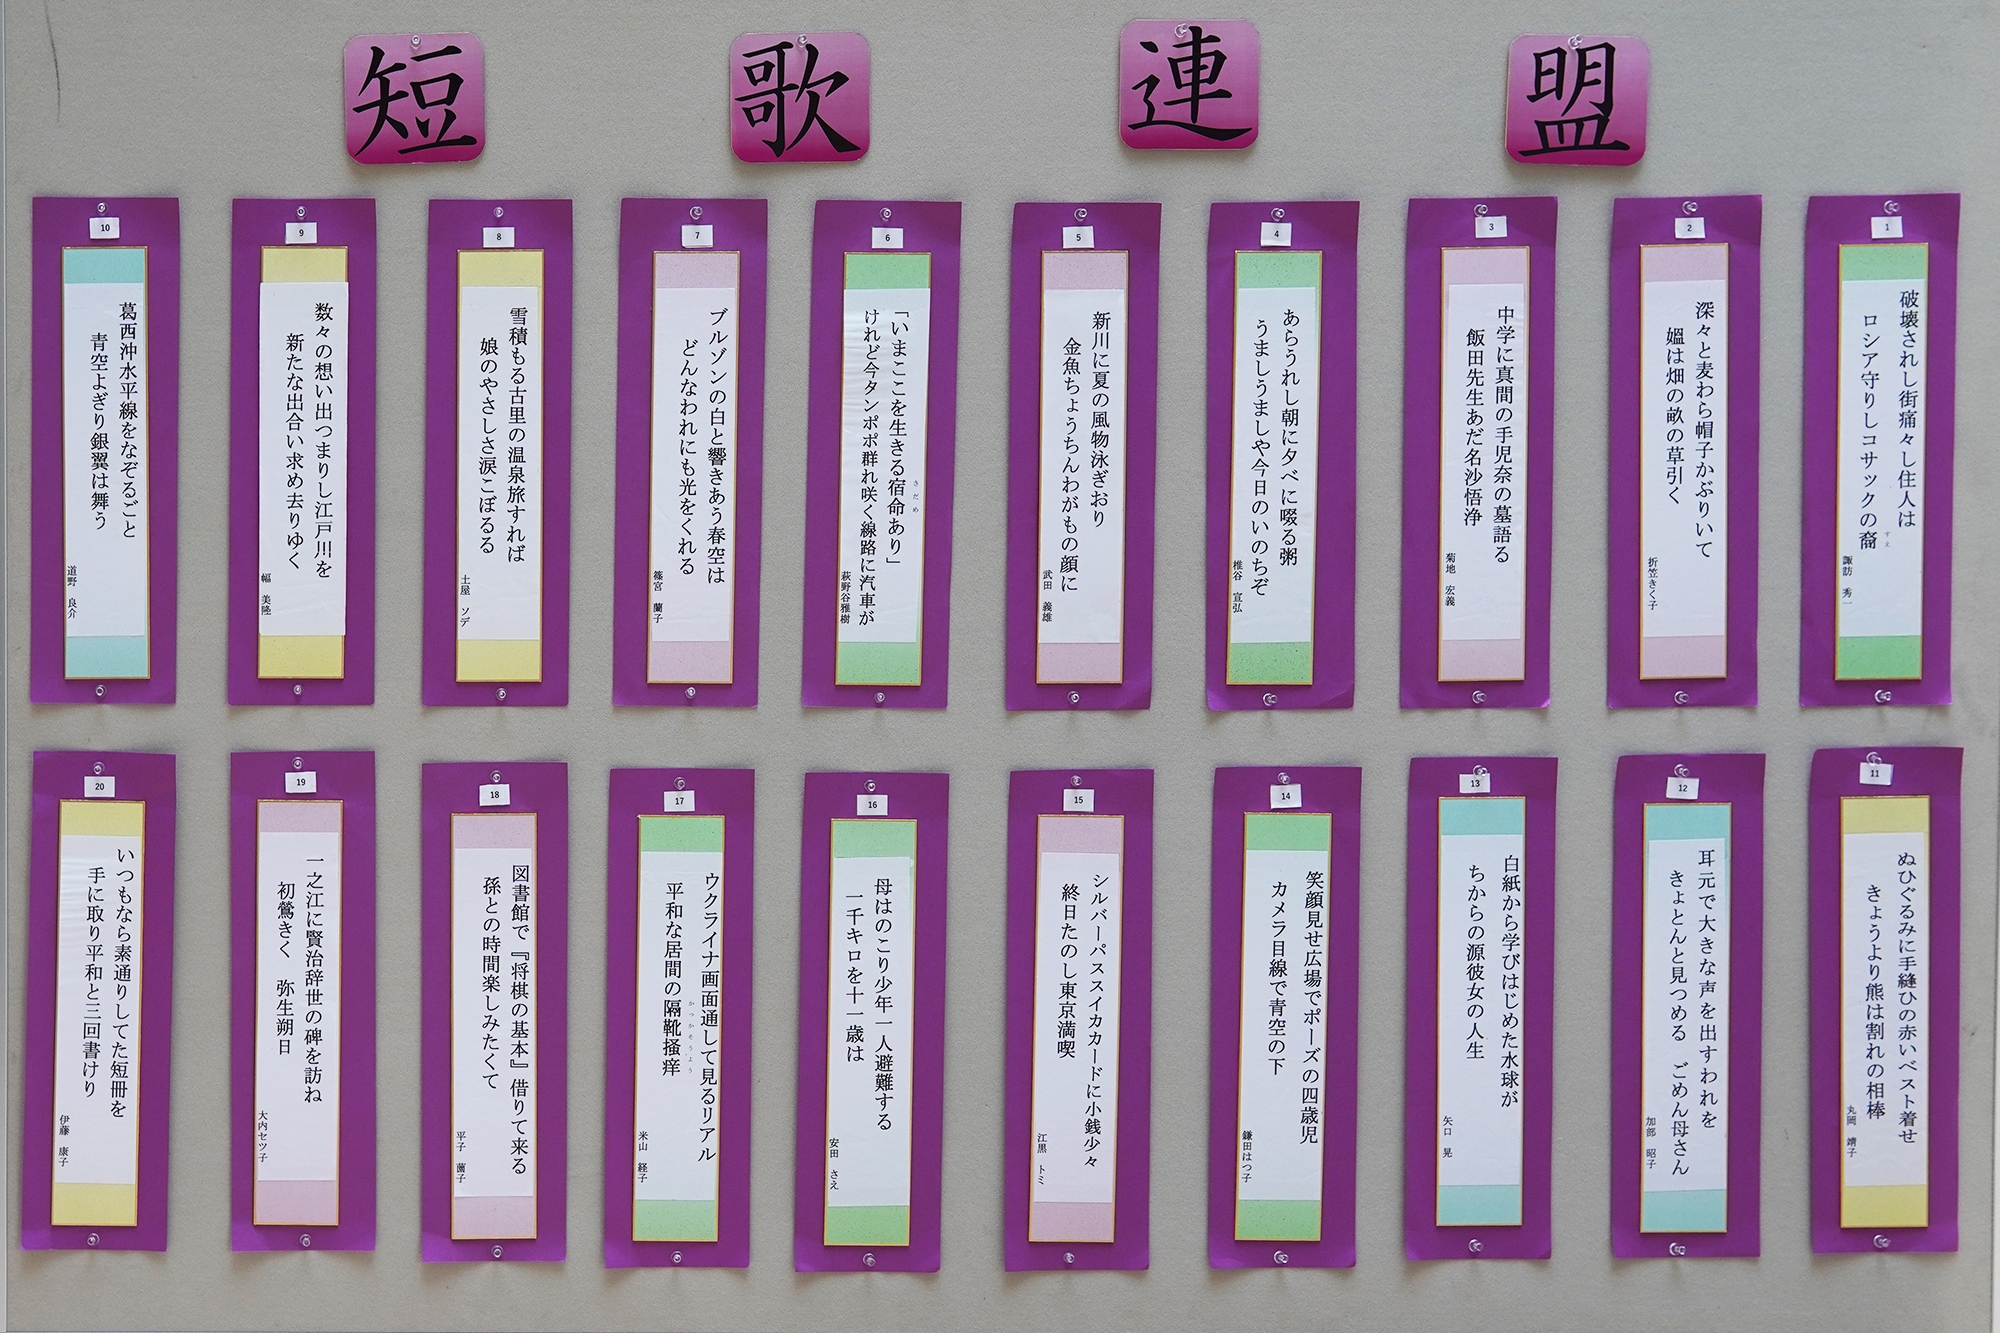 短歌連盟
1
破壊されし街痛々し住人は
ロシア守りしコサックの裔
すえ
諏訪 秀一
2
深々と麦わら帽子かぶりいて
媼は畑の畝の草引く
折笠きく子
3
中学に真間の手児奈の墓語る
飯田先生あだ名沙悟浄
菊地 宏義
4
あらうれし朝に夕べに啜る粥
うましうましや今日のいのちぞ
椎谷 宣弘
5
新川に夏の風物泳ぎおり
金魚ちょうちんわがもの顔に
武田 義雄
6
「いまここを生きる宿命あり」
さだめ
けれど今タンポポ群れ咲く線路に汽車が
萩野谷雅樹
7
ブルゾンの白と響きあう春空は
どんなわれにも光をくれる
篠宮 蘭子
8
雪積もる古里の温泉旅すれば
娘のやさしさ涙こぼるる
土屋 ソデ
9
数々の想い出つまりし江戸川を
新たな出合い求め去りゆく
幅 美隆
10
葛西沖水平線をなぞるごと
青空よぎり銀翼は舞う
道野 良介
11
ぬひぐるみに手縫ひの赤いベスト着せ
きょうより熊は割れの相棒
丸岡 靖子
12
耳元で大きな声を出すわれを
きょとんと見つめる ごめん母さん
加部 昭子
13
白紙から学びはじめた水球が
ちからの源彼女の人生
矢口 晃
14
笑顔見せ広場でポーズの四歳児
カメラ目線で青空の下
鎌田はつ子
15
シルバーパススイカカードに小銭少々
終日たのし東京満喫
江黒 トミ
16
母はのこり少年一人避難する
一千キロを十一歳は
安田 さえ
17
ウクライナ画面通して見るリアル
平和な居間の隔靴掻痒
かっかそうよう
米山 経子
18
図書館で『将棋の基本』借りて来る
孫との時間楽しみたくて
平子 薗子
19
一之江に賢治辞世の碑を訪ね
初鶯きく 弥生朔日
大内セツ子
20
いつもなら素通りしてた短冊を
手に取り平和と三回書けり
伊藤 康子